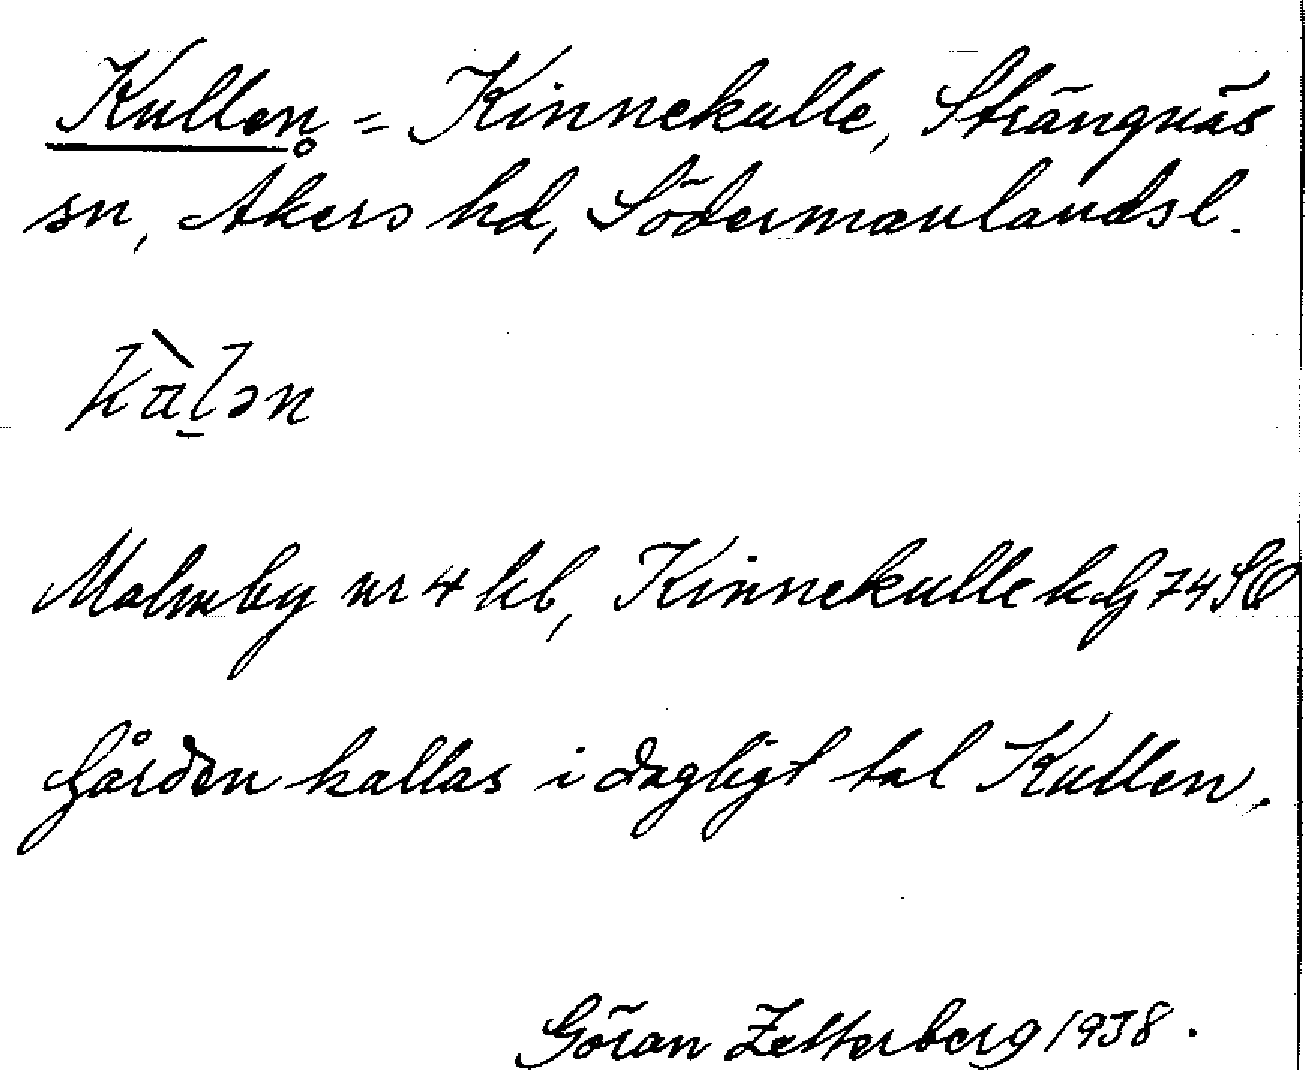 Kullen = Kinnekulle, Strängnäs
sn, Åkers hd, Södermanlands l.
Malmby nr 4 kb, Kinnekulle k G 74 SO
Gården kallas i dagligt tal Kullen.
Göran Zetterberg 1938.